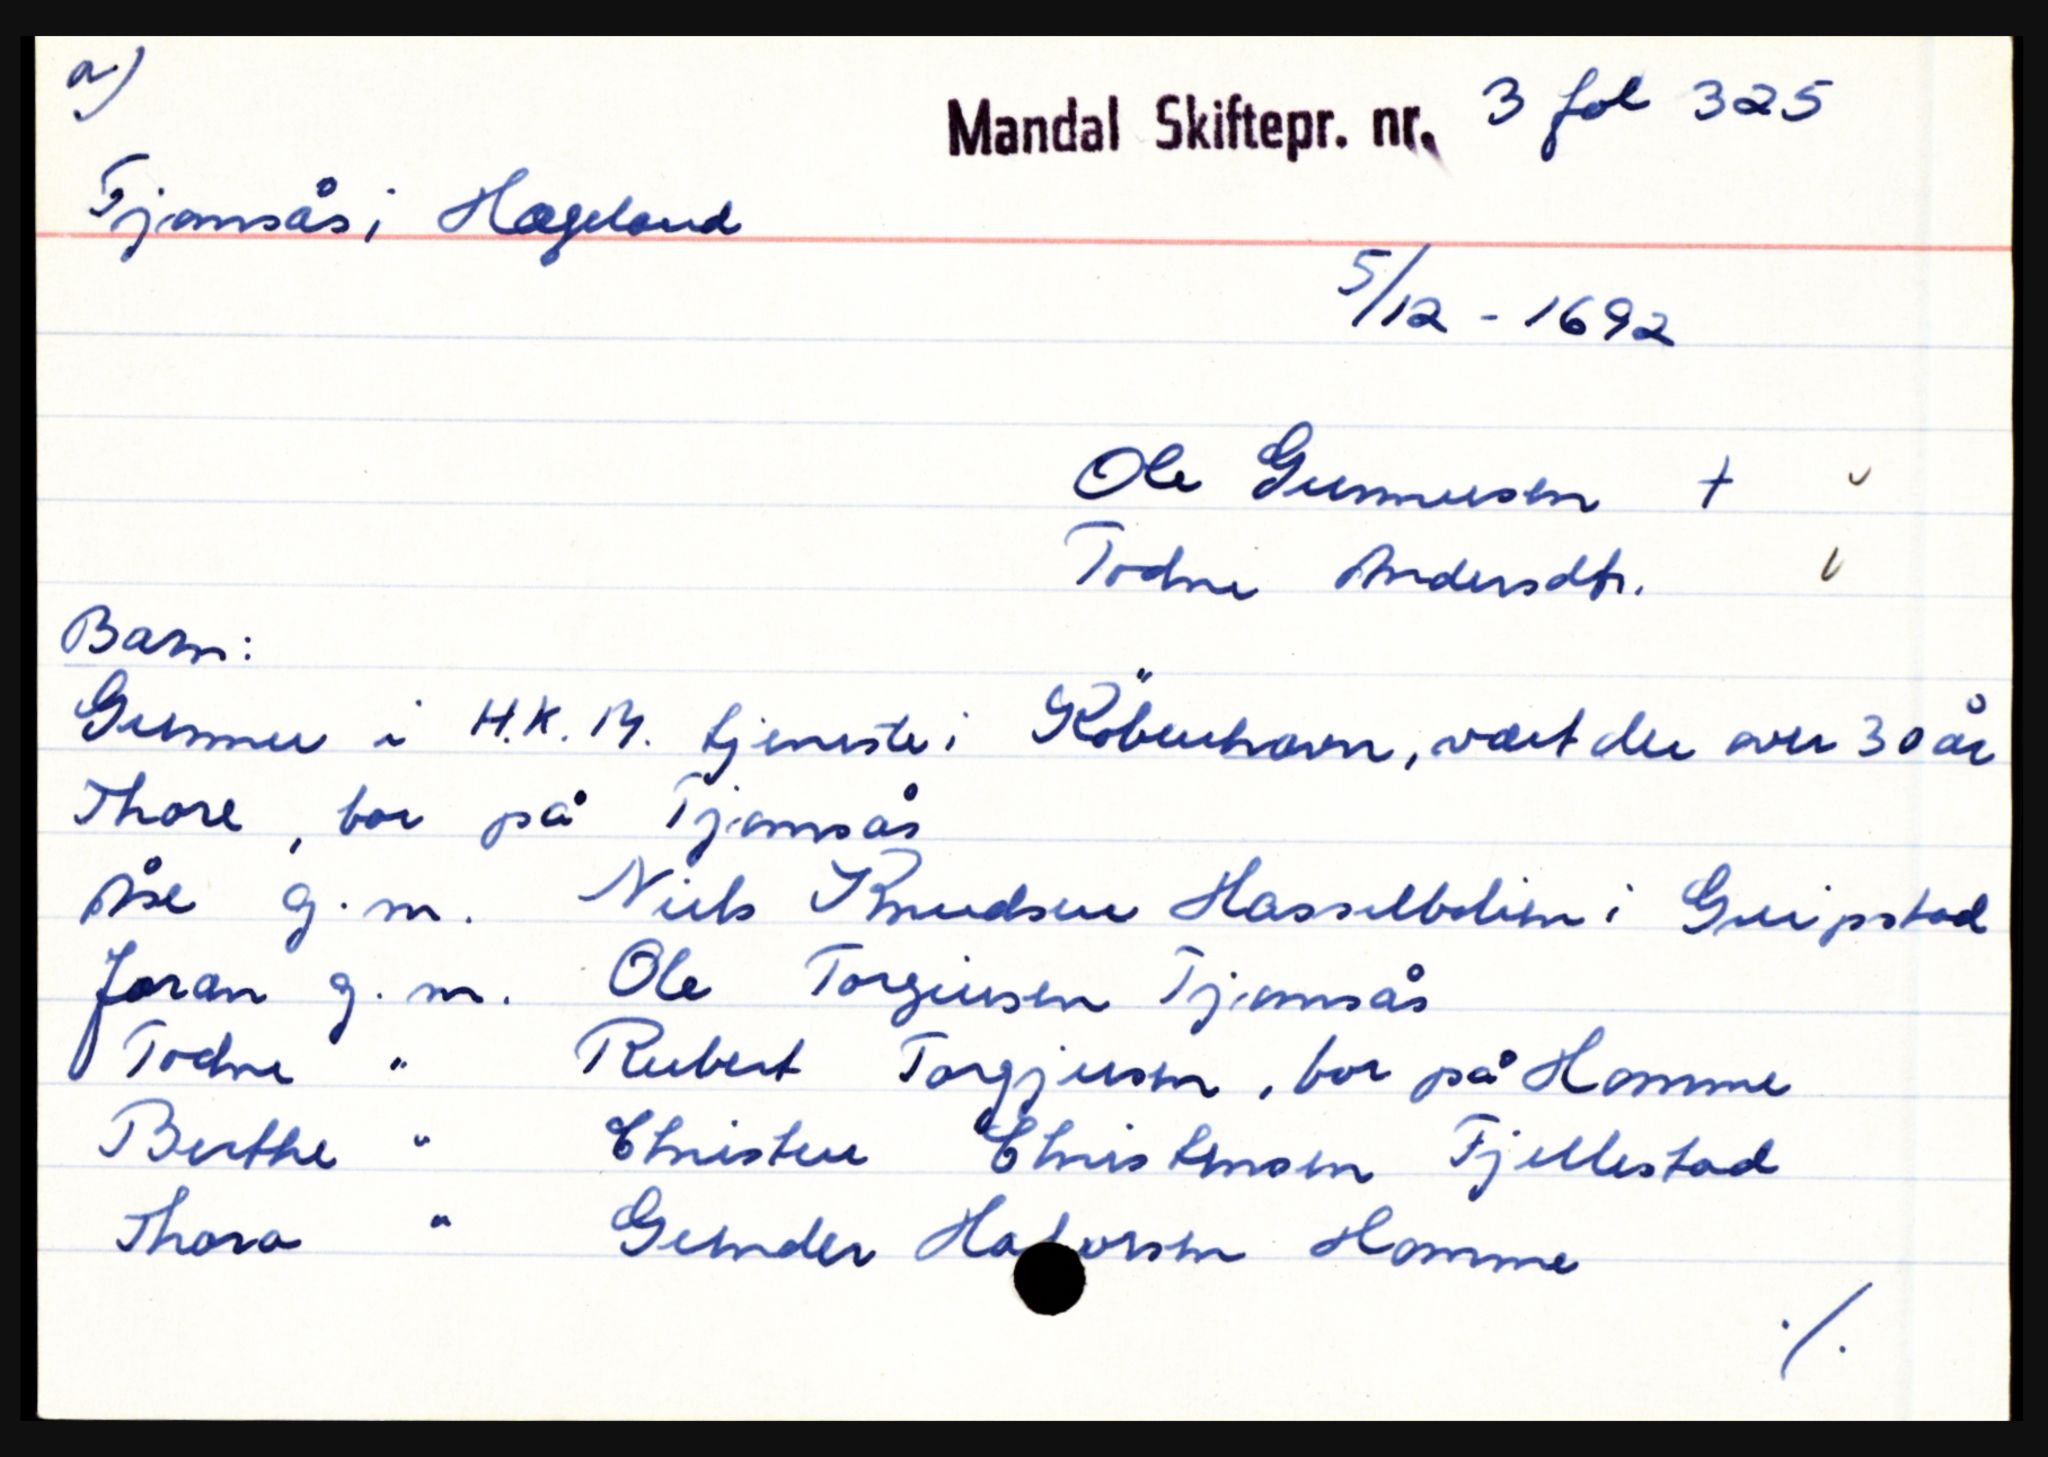 a)
Mandal Skiftepr. nr. 3 fol 325
Tjomsås i Hægeland
5/12 - 1692
Ole Gunnersen +
Todne Andersdtr.
Barn:
Gunner i H.K.M. tjeneste i Köbenhavn, vært der over 30 år
Thore, bor på Tjomsås
Åse g.m. Niels Knudsen Hasselbolien i Greipstad
Joran g.m. Ole Torgiusen Tjomsås
Todne " Rubert Torgjusen, bor på Homme
Berthe " Christen Christensen Fjellestad
Thora " Gunder Halvorsen Homme
./.